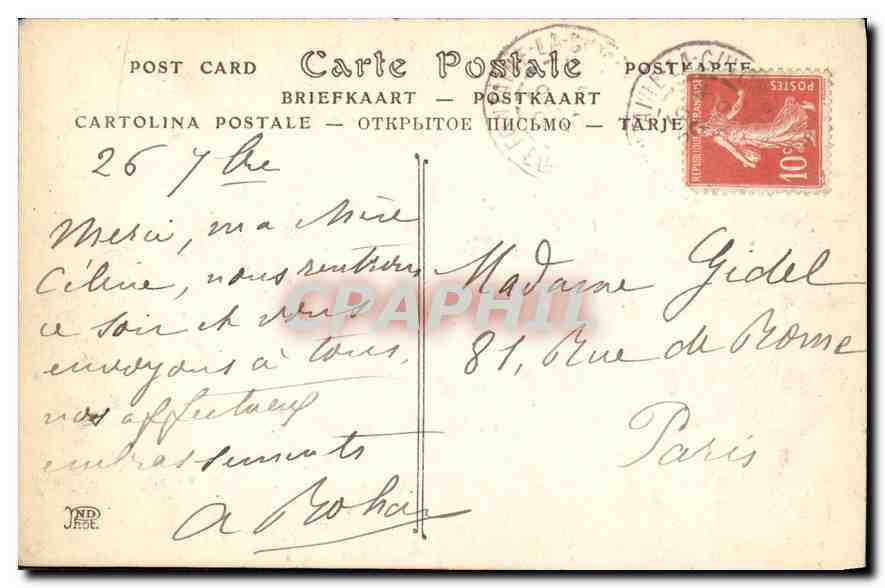 POST CARD Carte Postale POSTKARTE
BRIEFKAART — POSTKAART
CARTOLINA POSTALE — ОТКРЫТОЕ ПИСЬМО — TARJE
REPUBLIQUE FRANÇAISE
POSTES
10c
26 7bre
Merci, ma Mère
Céline, nous rentrons
ce soir et vous
envoyons à tous,
nos affectueux
embrassements
A Rohan
Madame Gidel
81, Rue de Rome
Paris
CPAPHIL
ND
Phot.